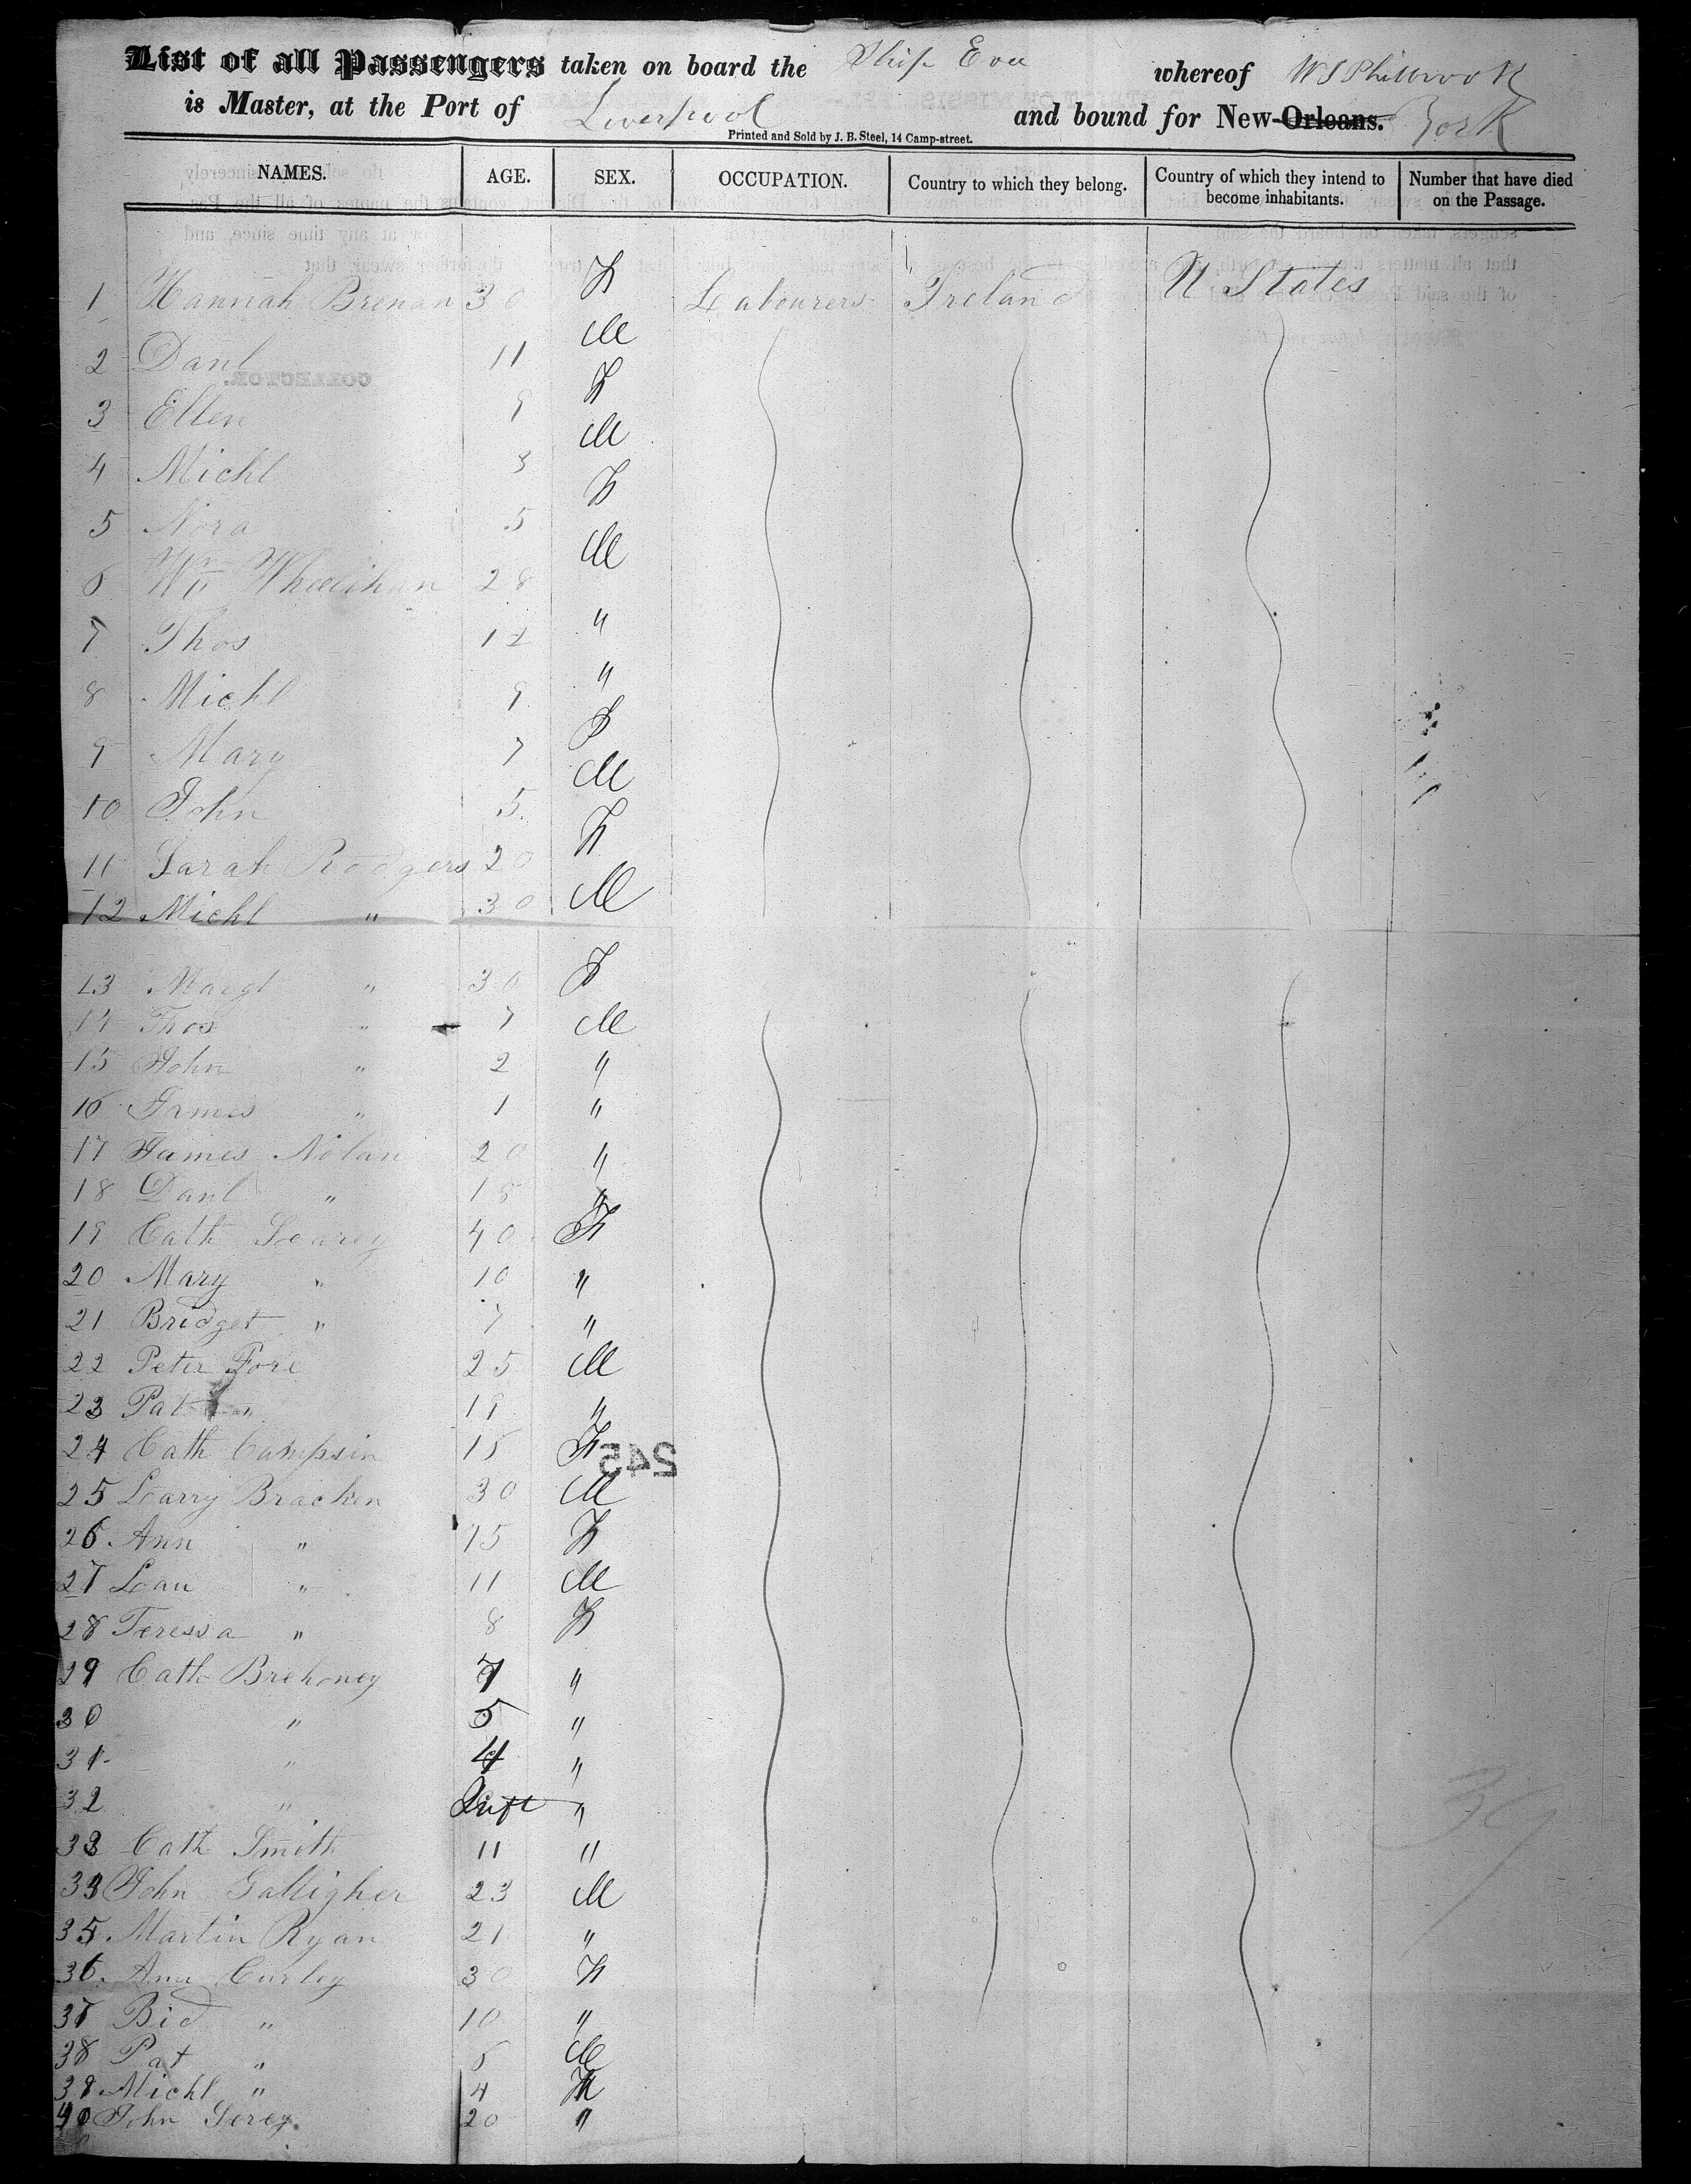 List of all Passengers taken on board the Ship Eva whereof W S Philbrook
is Master, at the Port of Liverpool and bound for New-Orleans. York
Printed and Sold by J. B. Steel, 14 Camp-street.
NAMES. AGE. SEX. OCCUPATION. Country to which they belong. Country of which they intend to become inhabitants. Number that have died on the Passage.
1 Hannah Brenan 30 F Labourers Ireland U States
2 Danl 11 M
3 Ellen 9 F
4 Michl 3 M
5 Nora 5 F
6 Wm Wheelihan 28 M
7 Thos 12 "
8 Michl 9 "
9 Mary 7 F
10 John 5 M
11 Sarah Rodgers 20 F
12 Michl " 30 M
13 Margt " 30 F
14 Thos " 7 M
15 John " 2 "
16 James " 1 "
17 James Nolan 20 "
18 Danl " 18 "
19 Cath 40 F
20 Mary " 10 "
21 Bridget " 7 "
22 Peter Fore 25 M
23 Pat " 19 "
24 Cath Campsin 15 F
245
25 Larry Bracken 30 M
26 Ann " 15 F
27 " 11 M
28 Teressa " 8 F
29 Cath Brehoney 7 "
30 " 5 "
31 " 4 "
32 " Inft "
33 Cath Smith 11 "
John Galligher 23 M
35 Martin Ryan 21 "
36 Ann Curley 30 F
37 Bid " 10 "
38 Pat " 5 M
39 Michl " 4 M
40 John 20 "
39